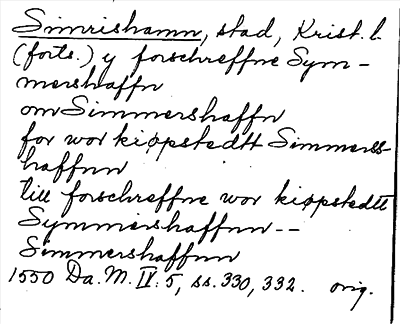 Simrishamn, stad, Krist. l.
(forts.) y forschreffne Sym-
mershaffn
om Simmershaffn
for wor kiøpstedtt Simmerss-
haffnn
till forschreffne wor kiøpstedtt
Symmershaffnn --
Simmershaffnn
1550 Da. M. IV: 5, ss. 330, 332. orig.